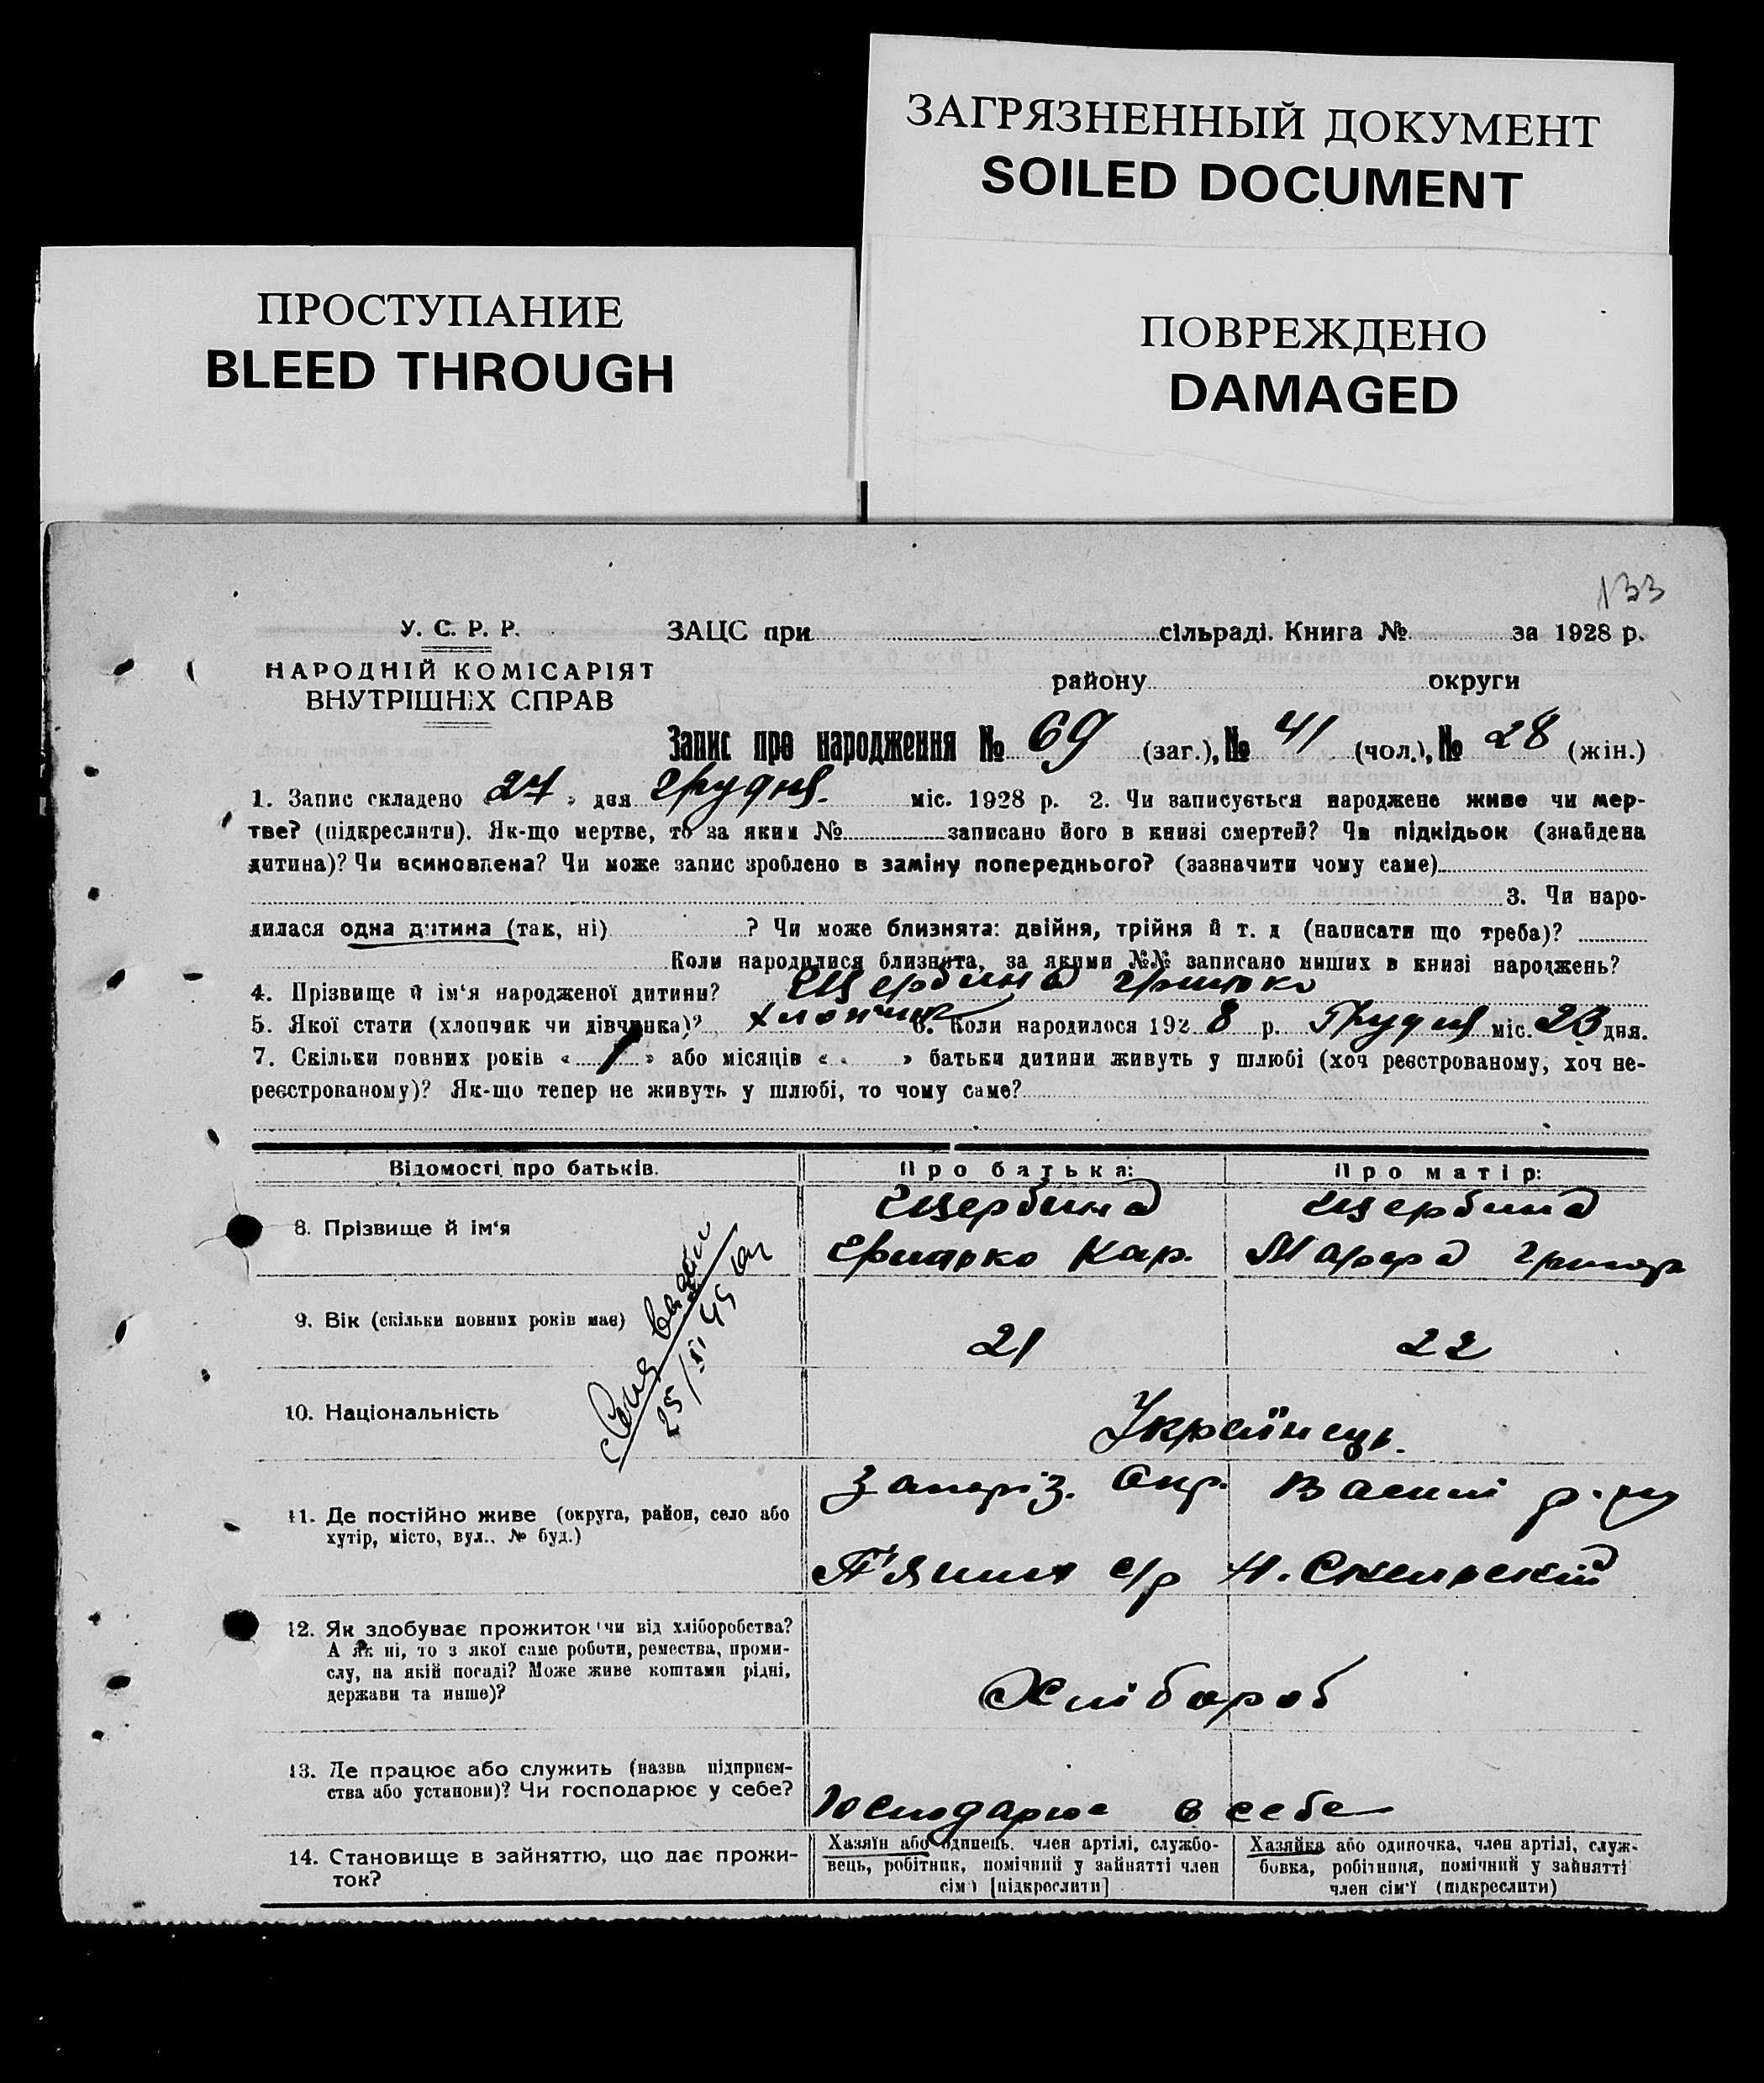 ЗАГРЯЗНЕННЫЙ ДОКУМЕНТ
SOILED DOCUMENT
ПРОСТУПАНИЕ
BLEED THROUGH
ПОВРЕЖДЕНО
DAMAGED
133
У. С. Р. Р.
НАРОДНІЙ КОМІСАРІЯТ
ВНУТРІШНІХ СПРАВ
ЗАЦС при сільраді. Книга № за 1928 р.
району округи
Запис про народження № 69 (заг.), № 41 (чол.), № 28 (жін.)
1. Запис складено 27 дня грудня міс. 1928 р. 2. Чи записується народжене живе чи мер-
тве? (підкреслити). Як-що мертве, то за яким № записано його в книзі смертей? Чи підкідьок (знайдена
дитина)? Чи всиновлена? Чи може запис зроблено в заміну попереднього? (зазначити чому саме)
3. Чи наро-
дилася одна дитина (так, ні) ? Чи може близнята: двійня, трійня й т. д (написати що треба)?
Коли народилися близнята, за якими №№ записано инших в книзі народжень?
4. Прізвище й ім'я народженої дитини? Щербина Грицько
5. Якої стати (хлопчик чи дівчинка)? хлопчик 6. Коли народилося 1928 р. Грудня міс. 23 дня.
7. Скільки повних років « 1 » або місяців « » батьки дитини живуть у шлюбі (хоч реєстрованому, хоч не-
реєстрованому)? Як-що тепер не живуть у шлюбі, то чому саме?
Відомості про батьків. Про батька: Про матір:
8. Прізвище й ім'я Щербина Грицько Кар. Щербина Марфа
9. Вік (скільки повних років має) 21 22
10. Національність Українець.
11. Де постійно живе (округа, район, село або
хутір, місто, вул., № буд.)
Запоріз. Окр. Васил р-н
с/р
12. Як здобуває прожиток (чи від хліборобства?
А як ні, то з якої саме роботи, ремества, проми-
слу, на якій посаді? Може живе коштами рідні,
держави та инше)?
Хлібороб
13. Де працює або служить (назва підприєм-
ства або установи)? Чи господарює у себе?
Господарює в себе
14. Становище в зайняттю, що дає прожи-
ток?
Хазяїн або одинець, член артілі, службо-
вець, робітник, помічний у зайнятті член
сім'ї [підкреслити]
Хазяйка або одиночка, член артілі, служ-
бовка, робітниця, помічний у зайнятті
член сім'ї (підкреслити)